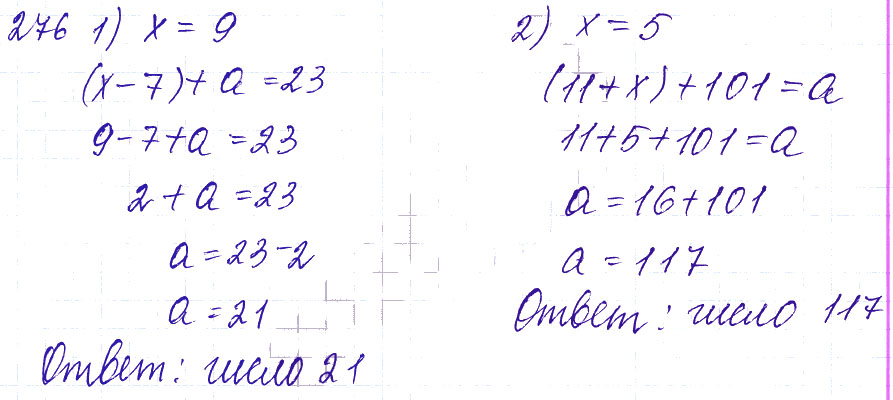 276 1) x = 9
(x - 7) + a = 23
9 - 7 + a = 23
2 + a = 23
a = 23 - 2
a = 21
Ответ: число 21
2) x = 5
(11 + x) + 101 = a
11 + 5 + 101 = a
a = 16 + 101
a = 117
Ответ: число 117